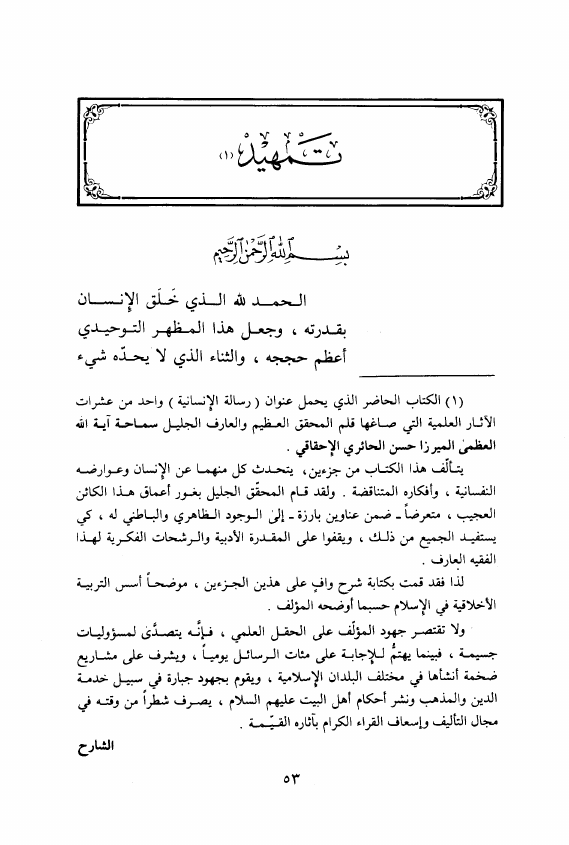 تمهيد (١)
بسم الله الرحمن الرحيم
الحمد لله الذي خَلَق الإنسان
بقدرته ، وجعل هذا المظهر التوحيدي
أعظم حججه ، والثناء الذي لا يحدّه شيء
(١) الكتاب الحاضر الذي يحمل عنوان ( رسالة الإنسانية ) واحد من عشرات
الآثار العلمية التي صاغها قلم المحقق العظيم والعارف الجليل سماحة آية الله
العظمى الميرزا حسن الحائري الإحقاقي .
يتألّف هذا الكتاب من جزءين، يتحدث كل منهما عن الإنسان وعوارضه
النفسانية ، وأفكاره المتناقضة . ولقد قام المحقّق الجليل بغور أعماق هذا الكائن
العجيب ، متعرضاً ـ ضمن عناوين بارزة ـ إلى الوجود الظاهري والباطني له ، كي
يستفيد الجميع من ذلك ، ويقفوا على المقدرة الأدبية والرشحات الفكرية لهذا
الفقيه العارف .
لذا فقد قمت بكتابة شرح وافٍ على هذين الجزءين ، موضحاً أسس التربية
الأخلاقية في الإسلام حسبما أوضحه المؤلف .
ولا تقتصر جهود المؤلّف على الحقل العلمي ، فإنَّه يتصدَّى لمسؤوليات
جسيمة ، فبينما يهتمُّ للإجابة على مئات الرسائل يومياً ، ويشرف على مشاريع
ضخمة أنشأها في مختلف البلدان الإسلامية ، ويقوم بجهود جبارة في سبيل خدمة
الدين والمذهب ونشر أحكام أهل البيت عليهم السلام ، يصرف شطراً من وقته في
مجال التأليف وإسعاف القراء الكرام بآثاره القيّمة .
الشارح
٥٣